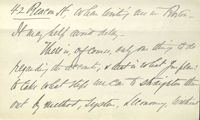 42 Beacon St, when writing me in Boston.
It may help avoid delay.
There is, of course, only one thing to do
regarding the county, & that is what I've plan
to take what steps we can to straighten them
out by method, system, & economy, without